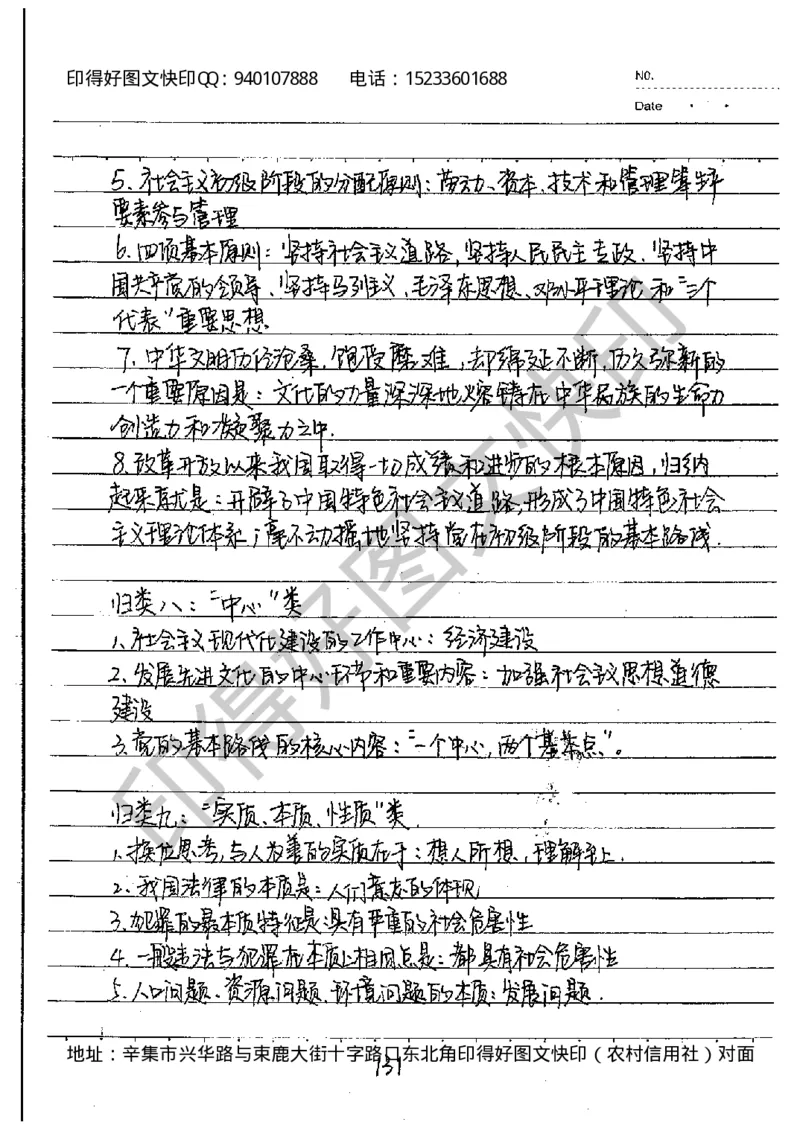 印得好图文快印QQ：940107888　电话：15233601688
NO.
Date
5、社会主义初级阶段的分配原则：劳动、资本、技术和管理等生产
要素参与管理
6、四项基本原则：坚持社会主义道路，坚持人民民主专政、坚持中
国共产党的领导、坚持马列主义、毛泽东思想、邓小平理论和“三个
代表”重要思想
7、中华文明历经沧桑，饱受磨难，却绵延不断，历久弥新的
一个重要原因是：文化的力量深深地熔铸在中华民族的生命力
创造力和凝聚力之中.
8.改革开放以来我国取得一切成绩和进步的根本原因，归纳
起来就是：开辟了中国特色社会主义道路，形成了中国特色社会
主义理论体系；毫不动摇地坚持党在初级阶段的基本路线.
归类八：“中心”类
1、社会主义现代化建设的工作中心：经济建设
2、发展先进文化的中心环节和重要内容：加强社会主义思想道德
建设
3、党的基本路线的核心内容：“一个中心，两个基本点”。
归类九：“实质、本质、性质”类
1、换位思考，与人为善的实质在于：想人所想，理解至上.
2、我国法律的本质是：人们意志的体现
3、犯罪的最本质特征是：具有严重的社会危害性
4、一般违法与犯罪在本质上相同点是：都具有社会危害性
5、人口问题、资源问题、环境问题的本质：发展问题.
地址：辛集市兴华路与束鹿大街十字路口东北角印得好图文快印（农村信用社）对面
131
印得好图文快印